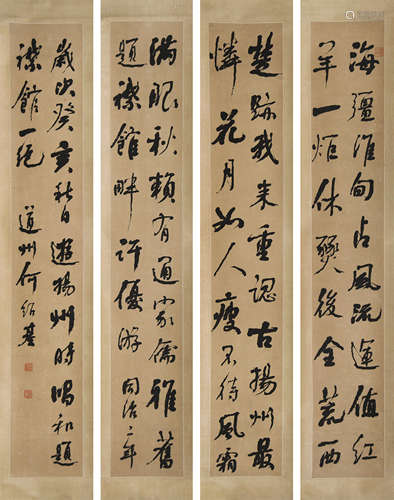 海疆淮甸占風流運值紅
羊一炬休燹後全荒西
楚跡我來重認古揚州最
憐花月如人瘦不待風霜
滿眼秋賴有通家儒雅舊
題襟館畔許優游 同治二年
歲次癸亥秋日遊揚州時唱和題
襟館一絕 道州何紹基